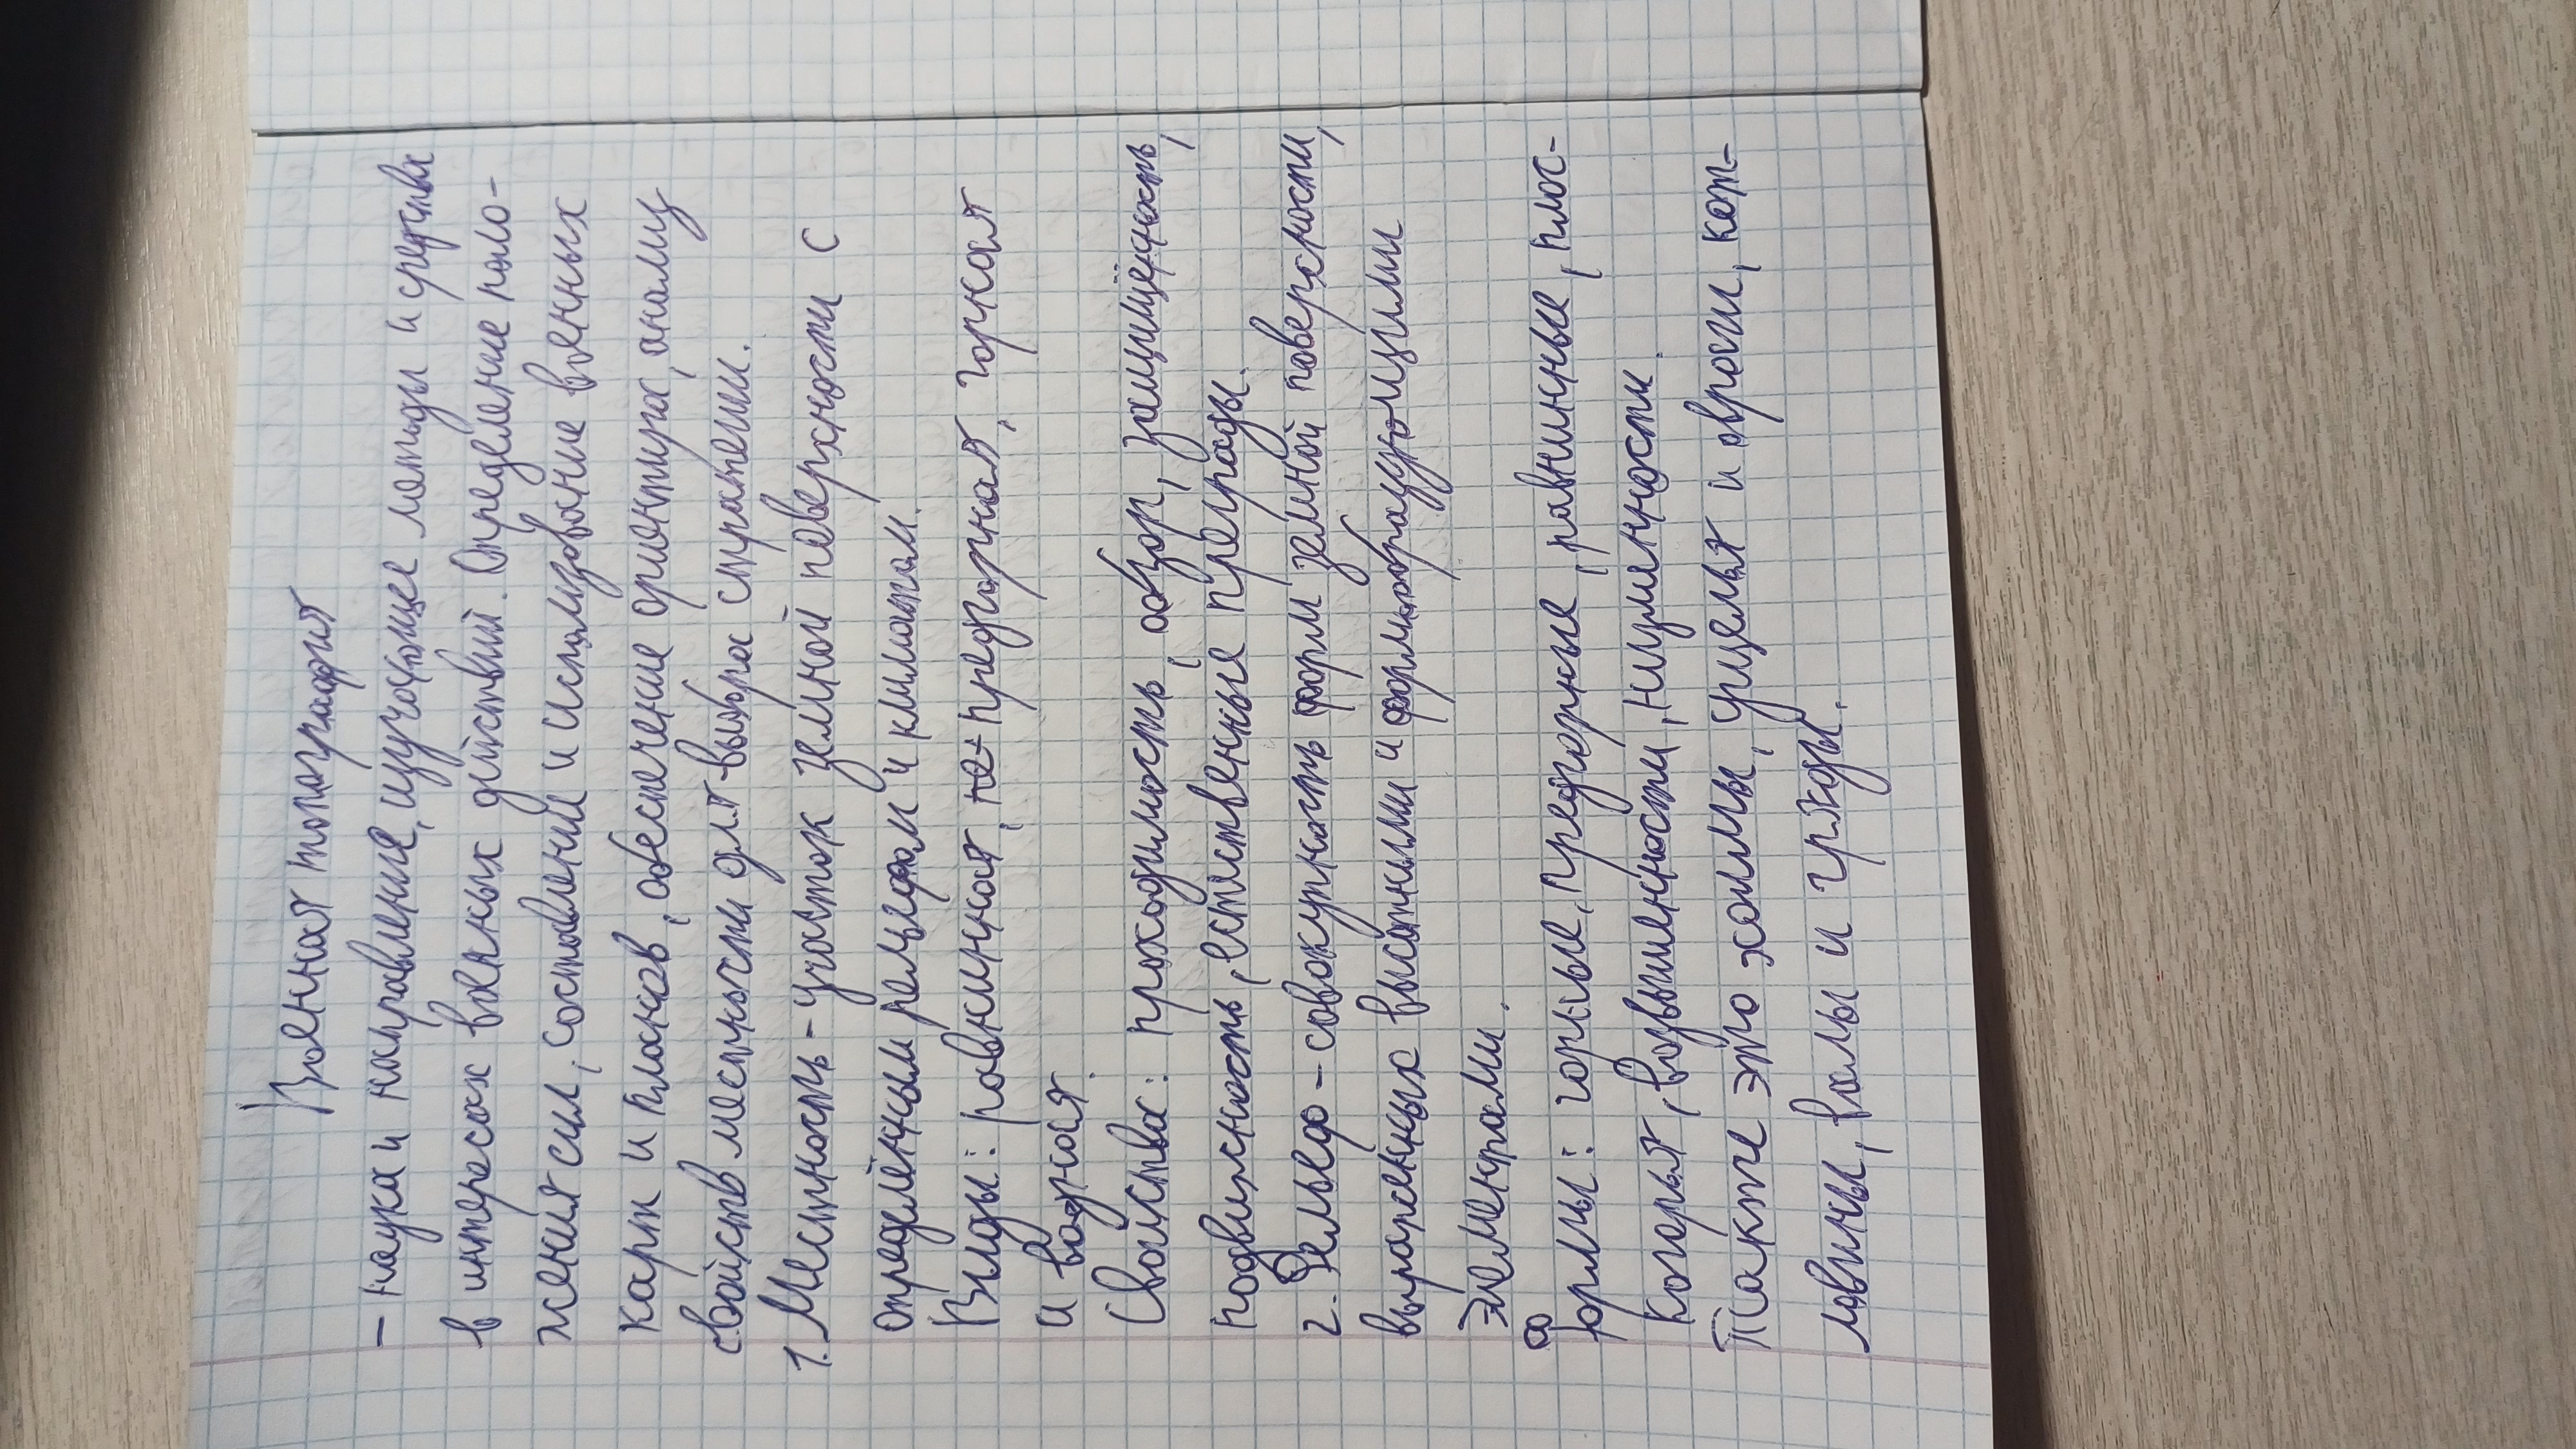 Военная топография
- наука и направление, изучающее методы и средства
в интересах военных действий. Определение поло-
жения сил, составлении и использование военных
карт и планов, обеспечение ориентира, анализу
свойств местности для выбора стратегии.
1. Местность - участок земной поверхности с
определённым рельефом и климатом.
Виды: равнинная, предгорная, горная
и водная.
Свойства: проходимость, обзор, защищённость,
подвижность, естественные преграды.
2. Рельеф - совокупность форм земной поверхности,
выраженных высотными и формообразующими
элементами.
Формы: горные, предгорные, равнинные, плос-
когорья, возвышенности, низменности.
Также это холмы, ущелья и овраги, кот-
ловины, валы и гряды.